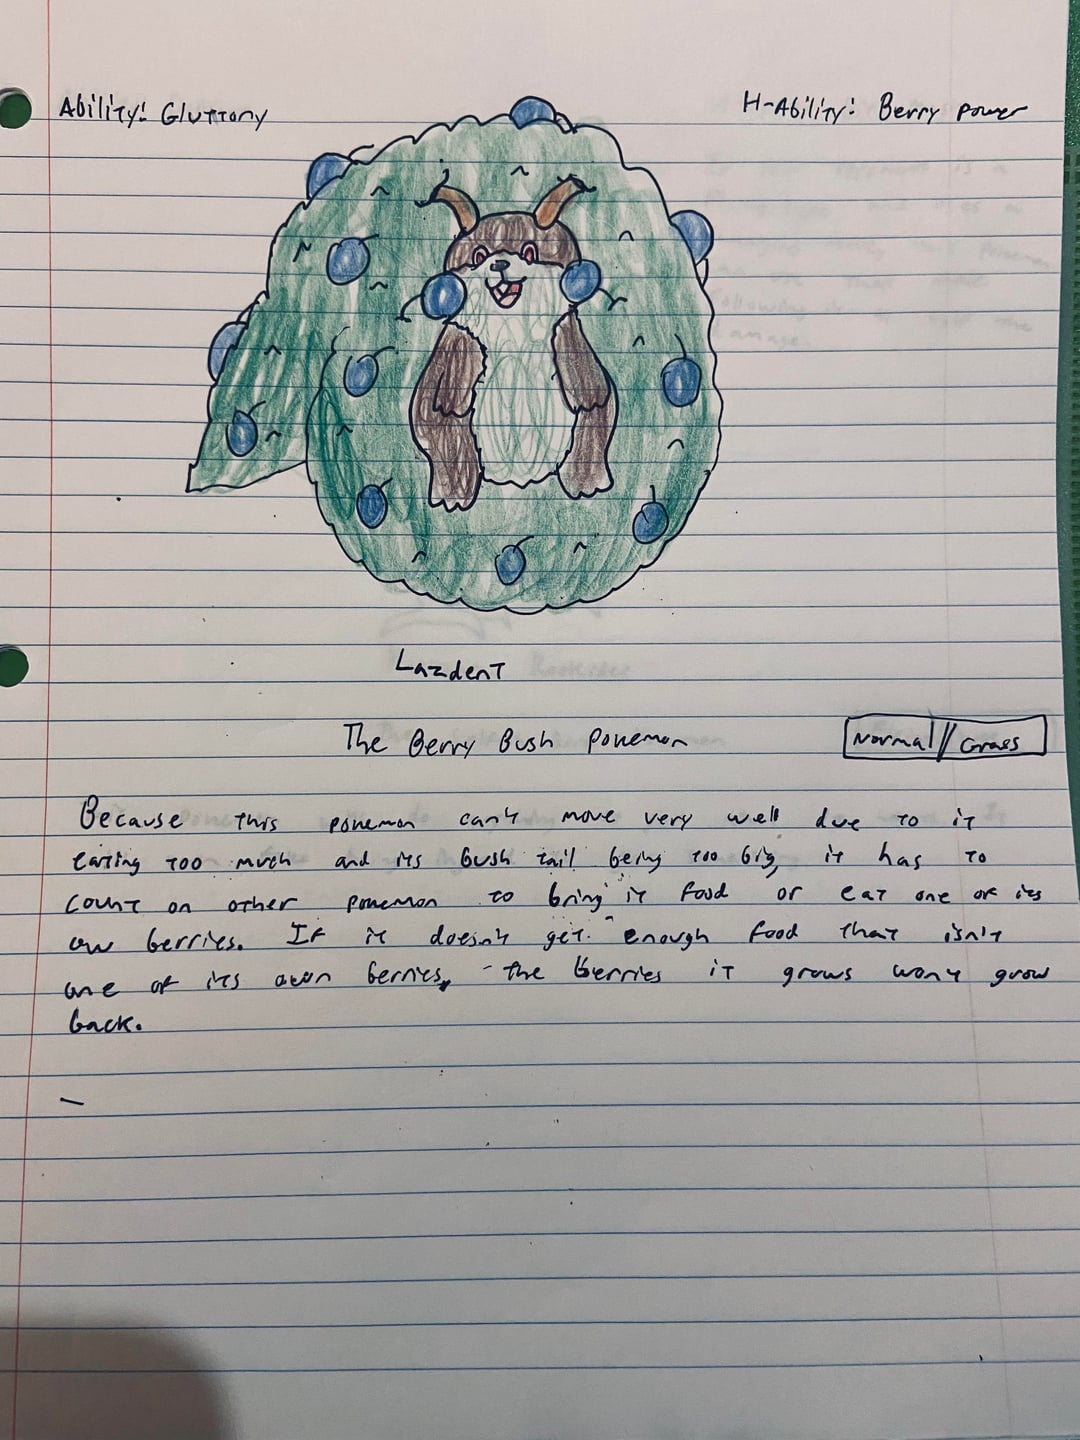 Ability: Gluttony
H-Ability: Berry power
Lazdent
The Berry Bush Pokemon
Normal // Grass
Because this pokemon can't move very well due to it
eating too much and its bush tail being too big, it has to
count on other pokemon to bring it food or eat one of its
own berries. If it doesn't get enough food that isn't
one of its own berries, the berries it grows won't grow
back.